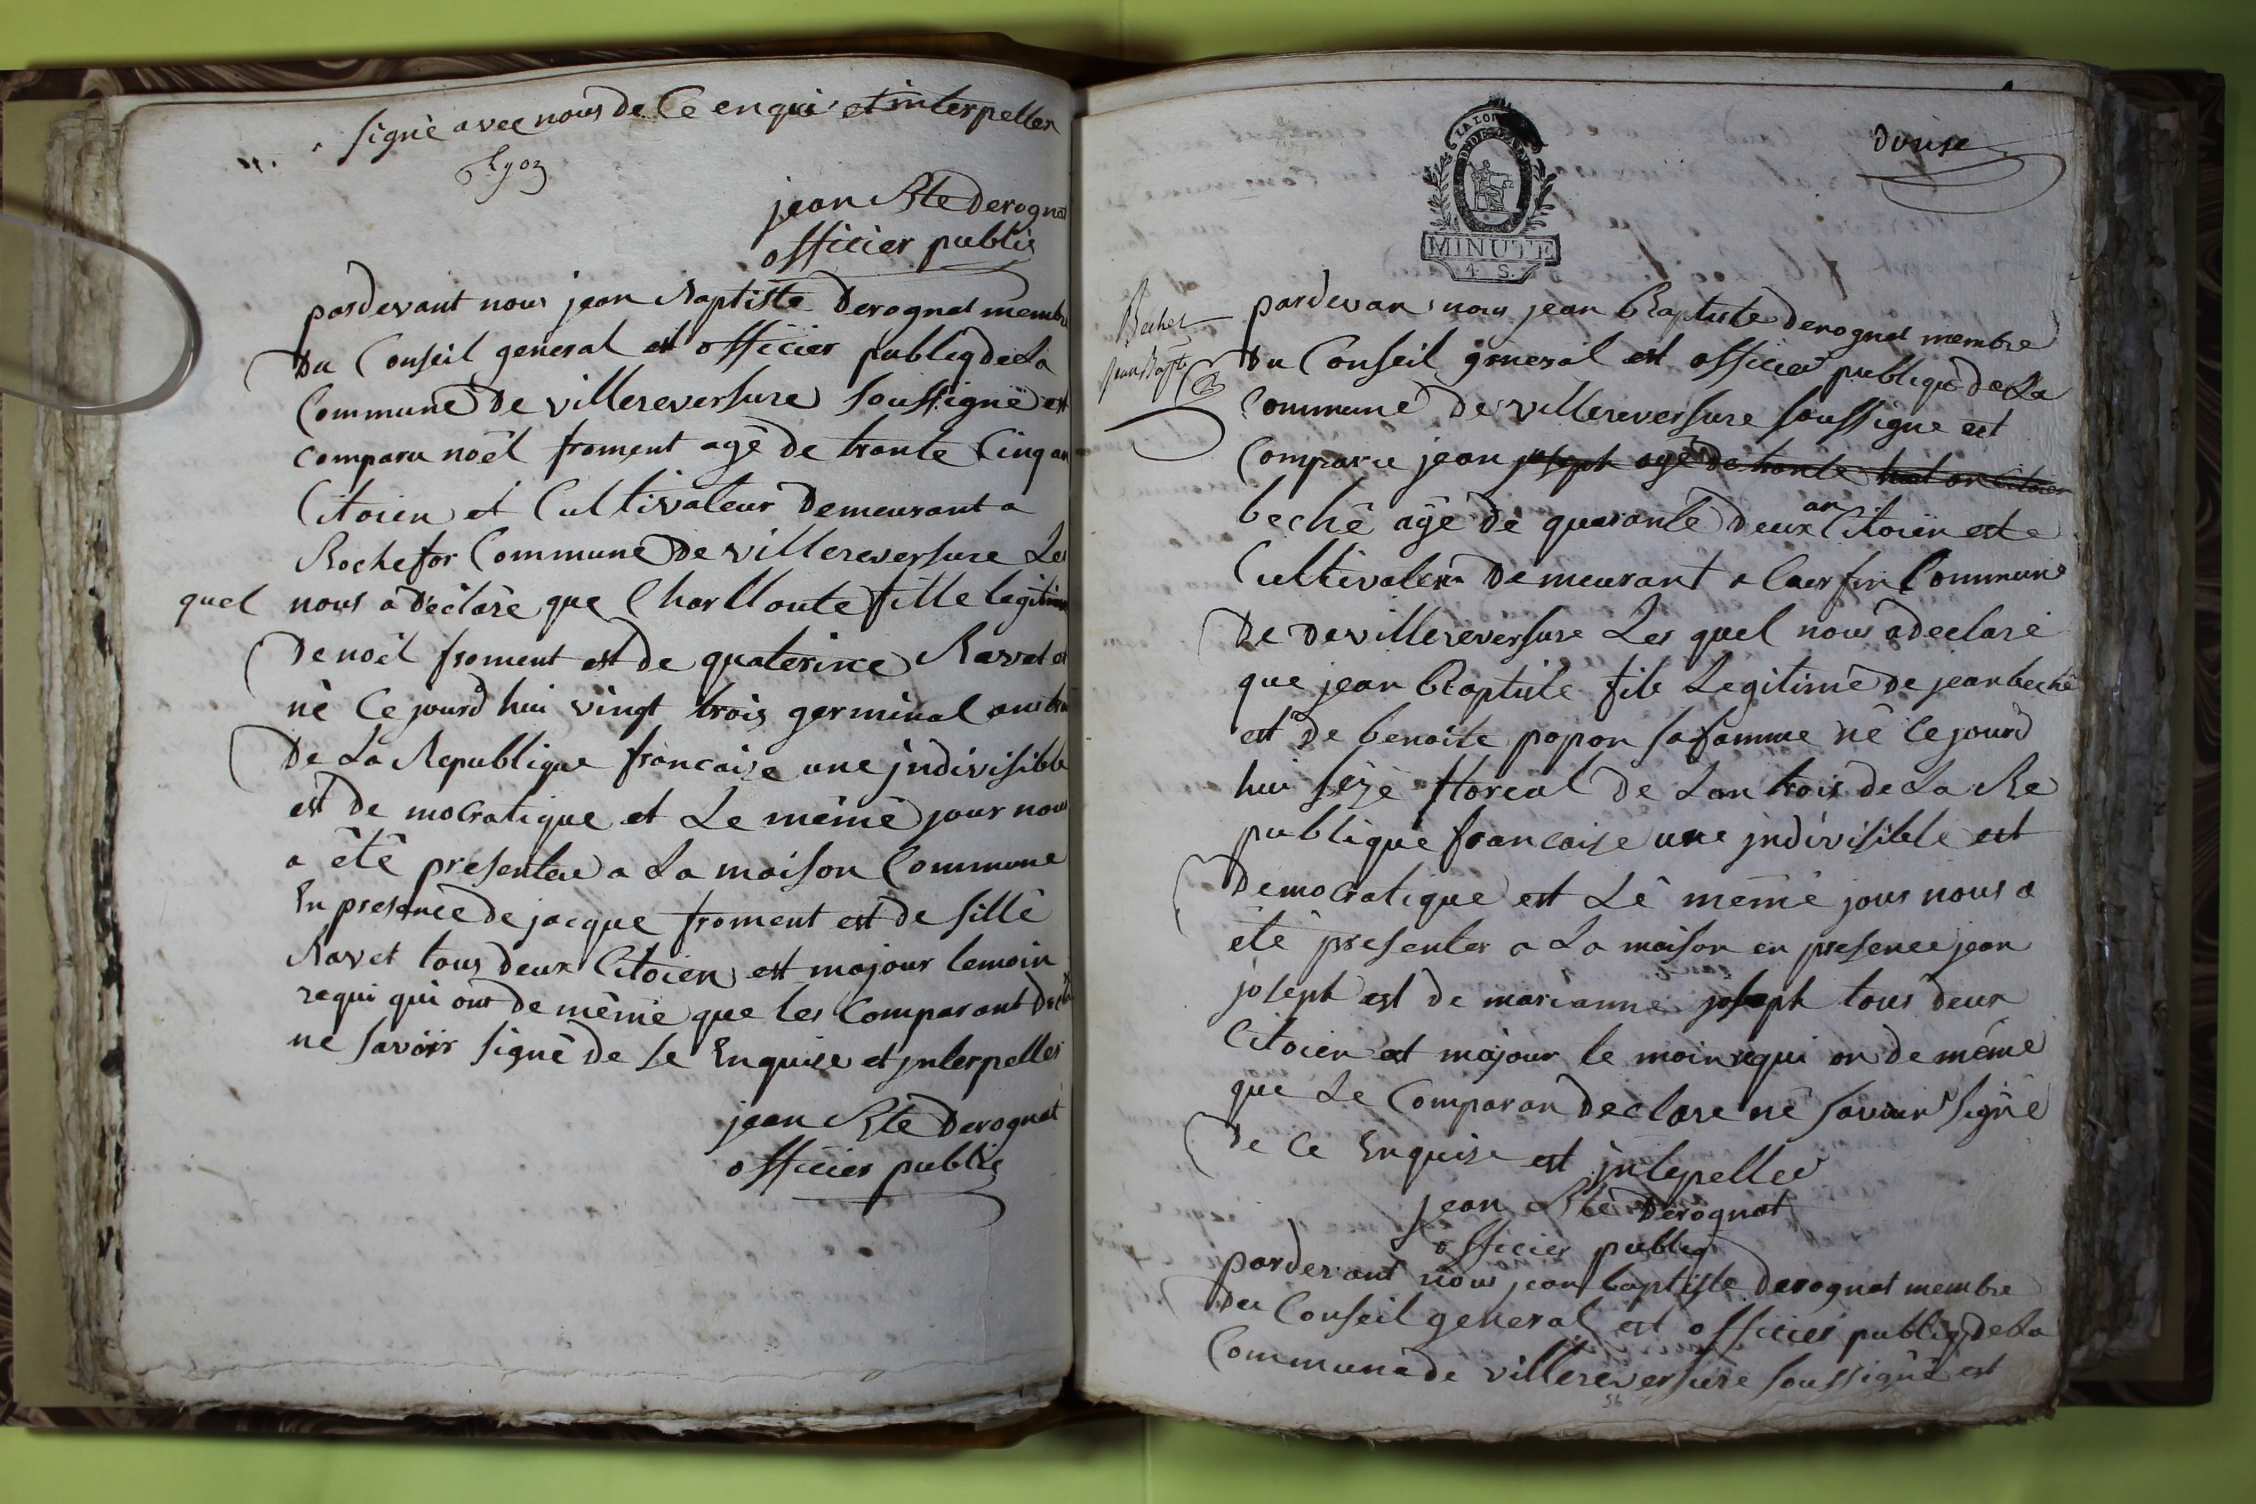 signè avec nous de Ce enqui et interpeller
Lyon
jean Bte Derognat
officier public
pardevant nous jean Baptiste Derognat membre
Du Conseil general est officier publiq de La
Commune De villereversure Soussigné est
comparu noël froment agé de trante Cinq an
Citoien et Cultivateur Demeurant a
Rochefor Commune De villereversure Les
quel nous a déclaré que Charlloute fille legitime
De noël froment est de quaterine Ravet et
né Ce jourd hui vingt trois germinal an trois
De La Republique francaise une jndivisible
est De mocratique et Le même jour nous
a êtê presentee a La maison Commune
En presance De jacque froment est de sillê
Ravet tous deux Citoien est majour temoin
requi qui ont De même que les Comparant Decla
ne savoir signé de se Enquise et jnterpeller
jean Bte Derognat
officier public
Douse
LA LOI
MINUTE
4 S.
Bechet
Jean Bapte
pardevan nous jean Baptiste Derognat membre
Du Conseil general est officier publique De La
Commune De villereversure soussigné est
Comparu jean joseph agé De trante huit an Citoien
bechê agé de quarante Deux an Citoien est
Cultivateur Demeurant a Commune
De De villereversure Les quel nous a declaré
que jean Baptiste fils Legitime De jean bechê
est De benoite popon sa famme né Ce jourd
hui sezè floreal De Lan trois de La Re
publique francaise une jndivisible est
Democratique est Lê même jour nous a
étê presenter a La maison en presence jean
joseph est de marianne joseph tous deux
Citoien et majour te moin requi on De même
que Le Comparan Declare né savoir Signé
De Ce Enquise est jntepeller
jean Bte Derognat
officier publiq
pardevant nous jean baptiste Derognat membre
Du Conseil general est officier publiq De La
Commune de villereversure soussigné est
56